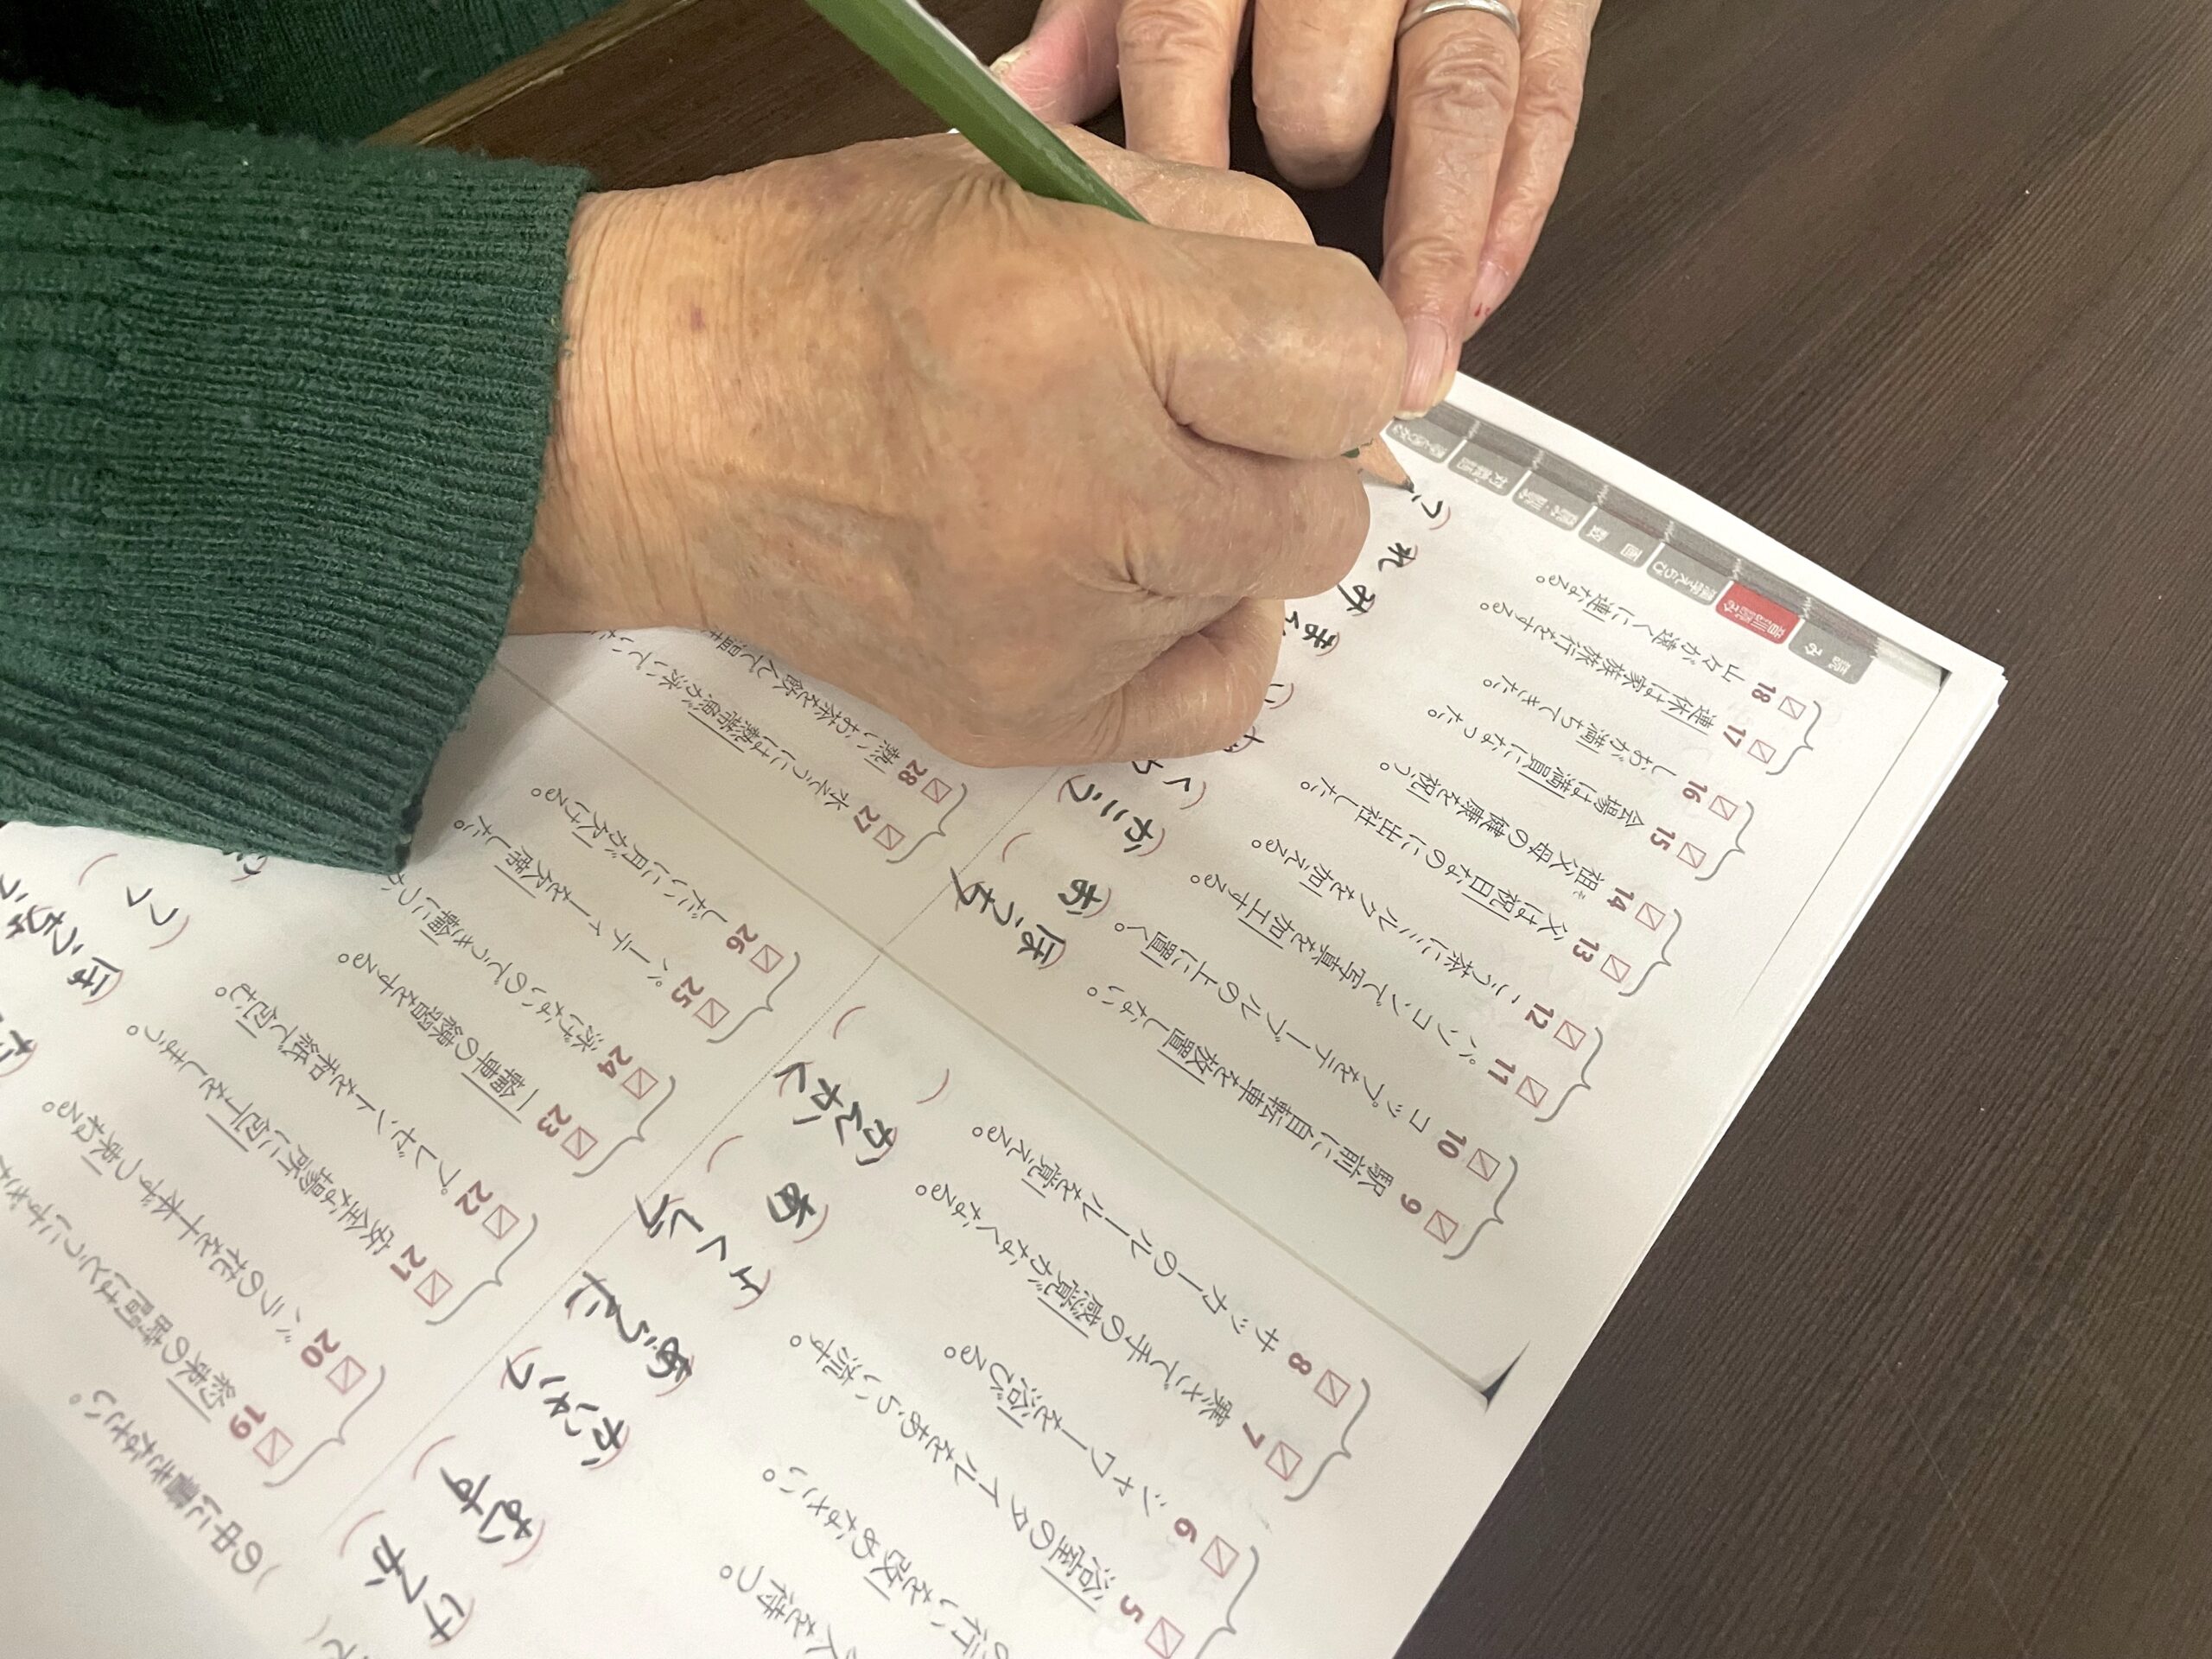 の中に書きなさい。
人を待つ。
の行いを改めなさい。
5 浴室のタイルをあらい流す。
6 シャワーを浴びる。
7 寒さで手の感覚がなくなる。
8 サッカーのルールを覚える。
けっか
むす
かいさつ
あらた
よくしつ
あ
かんかく
9 駅前に自転車を放置しない。
10 コップをテーブルの上に置く。
11 パソコンで写真を加工する。
12 こう茶にミルクを加える。
13 父は祝日なのに出社した。
14 祖父母の健康を祝う。
15 会場は満員になった。
16 しおが満ちてきた。
17 連休は家族旅行をする。
18 山々が遠くに連なる。
ほうち
お
かこう
くわ
み
れ
つ
19 約束の時間はとうにすぎた
20 バラの花を十本ずつ束ねる。
21 安全な場所に包丁をしまう。
22 プレゼントを和紙で包む。
23 一輪車の練習をする。
24 泳げないのでうき輪につか
25 パーティーを欠席した。
26 しだいに月が欠ける。
27 水そうには熱帯魚が泳いでい
28 熱いお茶を飲んで温ま
ほうちょう
つつ
読み
音訓読み
漢字えらび
画数
対義語